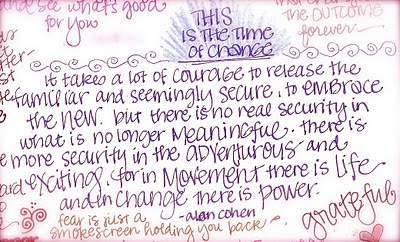 and see what's good
for you
THIS
is the time
of change
the outcome
forever
it takes a lot of courage to release the
familiar and seemingly secure, to embrace
the new. but there is no real security in
what is no longer meaningful. there is
more security in the adventurous and
exciting. for in movement there is life
and in change there is power.
-alan cohen
fear is just a
smokescreen holding you back
grateful